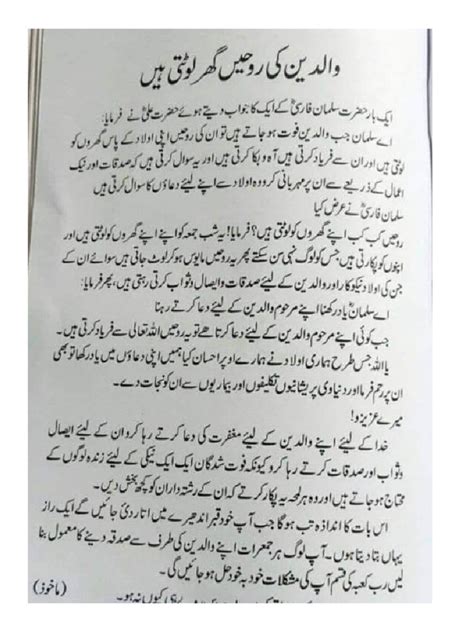 والدین کی روحیں گھر لوٹتی ہیں
ایک بار حضرت سلمان فارسیؓ کے ایک کا جواب دیتے ہوئے حضرت علیؓ نے فرمایا:
اے سلمان جب والدین فوت ہو جاتے ہیں تو ان کی روحیں اپنی اولاد کے پاس گھروں کو
لوٹتی ہیں اور ان سے فریاد کرتی ہیں آہ و پکا کرتی ہیں اور یہ سوال کرتی ہیں کہ صدقات اور نیک
اعمال کے ذریعے سے ان پر مہربانی کرو وہ اولاد سے اپنے لیئے دعاؤں کا سوال کرتی ہیں
سلمان فارسیؓ نے عرض کیا
روحیں کب کب اپنے گھروں کو لوٹتی ہیں؟ فرمایا! یہ شب جمعہ کو اپنے گھروں کو لوٹتی ہیں اور
اپنوں کو پکارتی ہیں، جس کو لوگ نہی سن سکتے پھر یہ روحیں مایوس ہو کر لوٹ جاتی ہیں سوائے ان کے
جن کی اولاد نیکو کار اور والدین کے لیئے صدقات و ایصال و ثواب کرتی رہتی ہیں، پھر فرمایا:
اے سلمانؓ یاد رکھنا اپنے مرحوم والدین کے لیئے دعا کرتے رہنا
جب کوئی اپنے مرحوم والدین کے لیئے دعا کرتا ھے تو یہ روحیں اللہ تعالی سے فریاد کرتی ہیں.
یا اللہ جس طرح ہماری اولاد نے ہمارے اوپر احسان کیا ہمیں اپنی دعاؤں میں یاد رکھا تو بھی
ان پر رحم فرما اور دنیاوی پریشانیوں تکلیفوں اور بیماریوں سے ان کو نجات دے۔
میرے عزیزو!
خدا کے لیئے اپنے والدین کے لیئے مغفرت کی دعا کرتے رہا کرو ان کے لیئے ایصال
و ثواب اور صدقات کرتے رہا کرو کیونکہ فوت شدگان ایک ایک نیکی کے لیئے زندہ لوگوں کے
محتاج ہو جاتے ہیں اور وہ ہر لمحہ یہ پکار کرتے کہ ان کے رشتہ داران کو کچھ بخش دیں۔
اس بات کا اندازہ تب ہو گا جب آپ خود قبر اندھیرے میں اتار دئی جائیں گے ایک راز
یہاں بتا دیتا ہوں۔ آپ لوگ ہر جمعرات اپنے والدین کی طرف سے صدقہ دینے کا معمول بنا
لیں رب کعبہ کی قسم آپ کی مشکلات خود بہ خود حل ہو جائیں گی۔
(ماخوذ)
کیوں نہ ہو۔